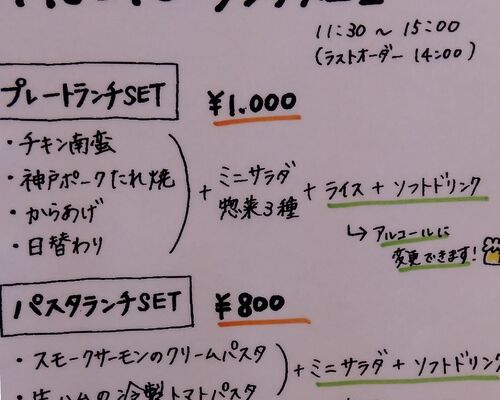 11:30 ~ 15:00
(ラストオーダー 14:00)
プレートランチSET ¥1.000
・チキン南蛮
・神戸ポークたれ焼
・からあげ
・日替わり
+ ミニサラダ 惣菜3種 + ライス + ソフトドリンク
↳ アルコールに
変更できます!
パスタランチSET ¥800
・スモークサーモンのクリームパスタ
・生ハムの冷製トマトパスタ
+ ミニサラダ + ソフトドリン